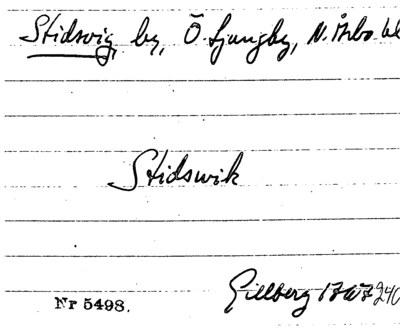 Stidsvig, by, Ö. Ljungby, N. Åsbo
Stidswik
Gillberg 1767 240
Nr 5498.